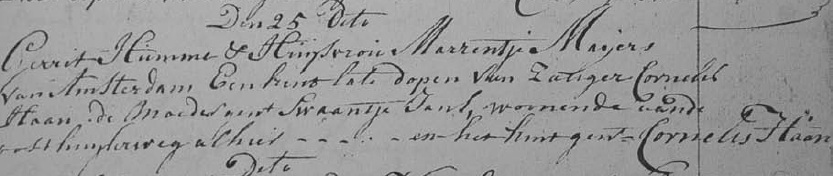 Den 25 Dito
Gerrit Humme & Huijsvrou Marrentje Maijers
van Amsterdam Een kint late dopen van Zaliger Cornelis
Haan, de Moeder gent Swaantje Jans, woonende aande
huijserweg alhier - - - - - en het kint gent= Cornelis Haan
Dito